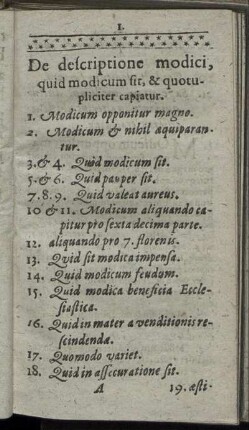 1.
De descriptione modici,
quid modicum sit, & quotu-
pliciter capiatur.
1. Modicum opponitur magno.
2. Modicum & nihil æquiparan-
tur.
3. & 4. Quid modicum sit.
5. & 6. Quid pauper sit.
7. 8. 9. Quid valeat aureus.
10 & 11. Modicum aliquando ca-
pitur pro sexta decima parte.
12. aliquando pro 7. florenis.
13. Qvid sit modica impensa.
14. Quid modicum feudum.
15. Quid modica beneficia Eccle-
siastica.
16. Quid in mater a venditionis re-
scindenda.
17. Quomodo variet.
18. Quid in assecuratione sit.
A 19. æsti-